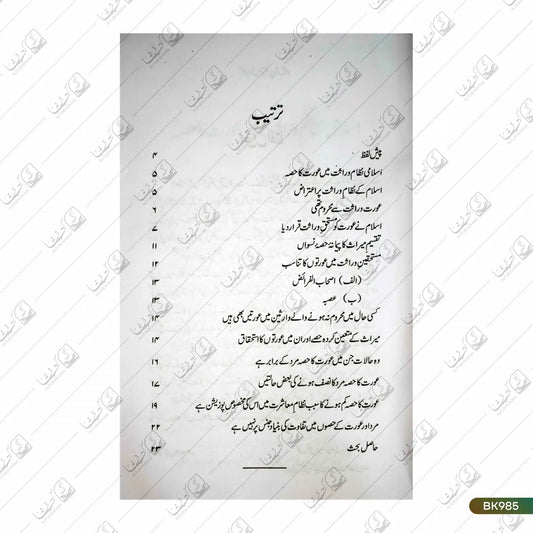 ترتیب
پیش لفظ ۴
اسلامی نظام وراثت میں عورت کا حصہ ۵
اسلام کے نظام وراثت پر اعتراض ۵
عورت وراثت سے محروم تھی ۶
اسلام نے عورت کو مستحق وراثت قرار دیا ۷
تقسیم میراث کا پیمانہ حصۂ نسواں ۱۱
مستحقین وراثت میں عورتوں کا تناسب ۱۲
(الف) اصحاب الفرائض ۱۳
(ب) عصبہ ۱۳
کسی حال میں محروم نہ ہونے والے وارثین میں عورتیں بھی ہیں ۱۴
میراث کے متعین کردہ حصے اور ان میں عورتوں کا استحقاق ۱۴
وہ حالات جن میں عورت کا حصہ مرد کے برابر ہے ۱۶
عورت کا حصہ مرد کا نصف ہونے کی بعض حالتیں ۱۷
عورت کا حصہ کم ہونے کا سبب نظام معاشرت میں اس کی مخصوص پوزیشن ہے ۱۹
مرد اور عورت کے حصوں میں تفاوت کی بنیاد جنس پر نہیں ہے ۲۲
حاصل بحث ۲۳
BK985